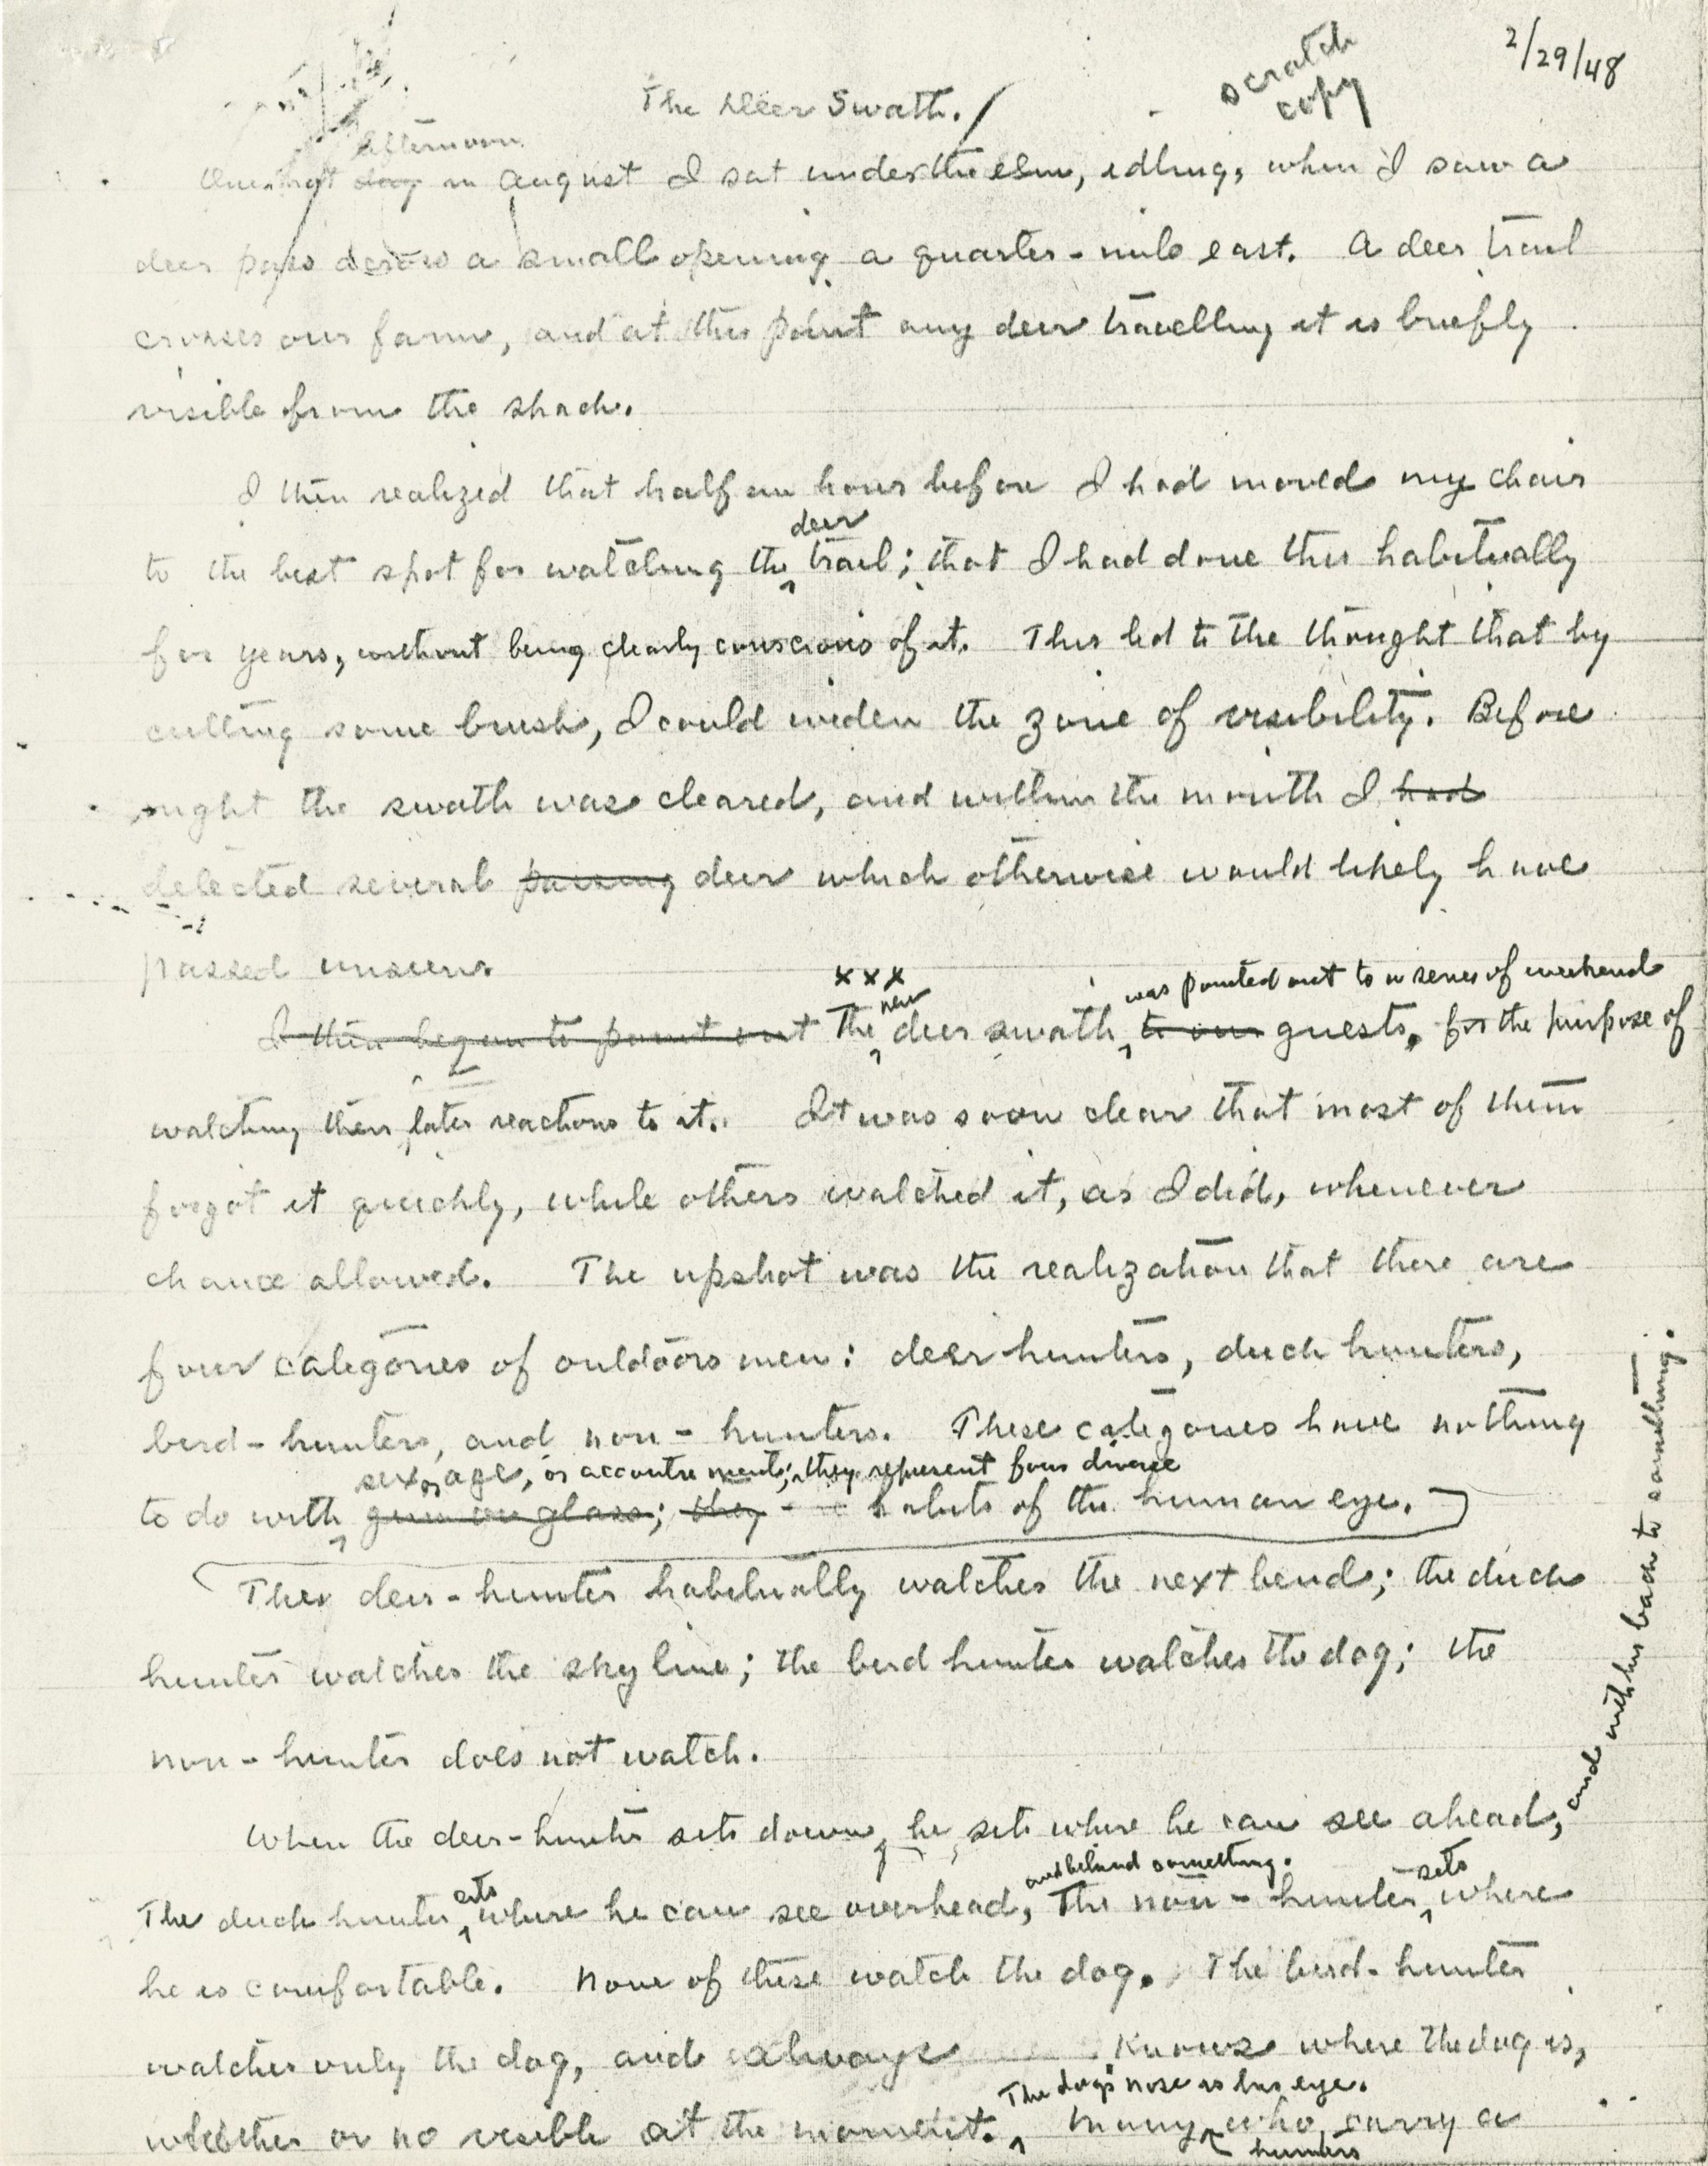 2/29/48
scratch
copy
The Deer Swath.
afternoon
One hot day in August I sat under the elm, idling, when I saw a
deer pass across a small opening a quarter-mile east. A deer trail
crosses our farm, and at this point any deer travelling it is briefly
visible from the shack.
I then realized that half an hour before I had moved my chair
deer
to the best spot for watching the trail; that I had done this habitually
for years, without being clearly conscious of it. This led to the thought that by
cutting some brush, I could widen the zone of visibility. Before
night the swath was cleared, and within the month I had
detected several passing deer which otherwise would likely have
passed unseen.
x x x
new was pointed out to a series of weekend
I then began to point out The deer swath to our guests, for the purpose of
watching their later reactions to it. It was soon clear that most of them
forgot it quickly, while others watched it, as I did, whenever
chance allowed. The upshot was the realization that there are
four categories of outdoors men: deer hunters, duck hunters,
bird-hunters, and non-hunters. These categories have nothing
sex or age, or accoutrements; they represent four diverse
to do with gun or glass; they habits of the human eye.
The deer-hunter habitually watches the next bend; the duck
hunter watches the skyline; the bird hunter watches the dog; the
non-hunter does not watch.
When the deer-hunter sits down, he sits where he can see ahead,
and with his back to something.
and behind something.
sits sits
The duck hunter where he can see overhead, The non-hunter where
he is comfortable. None of these watch the dog. The bird-hunter
watches only the dog, and always knows where the dog is,
The dog's nose is his eye.
whether or no visible at the moment. Many who carry a
hunters